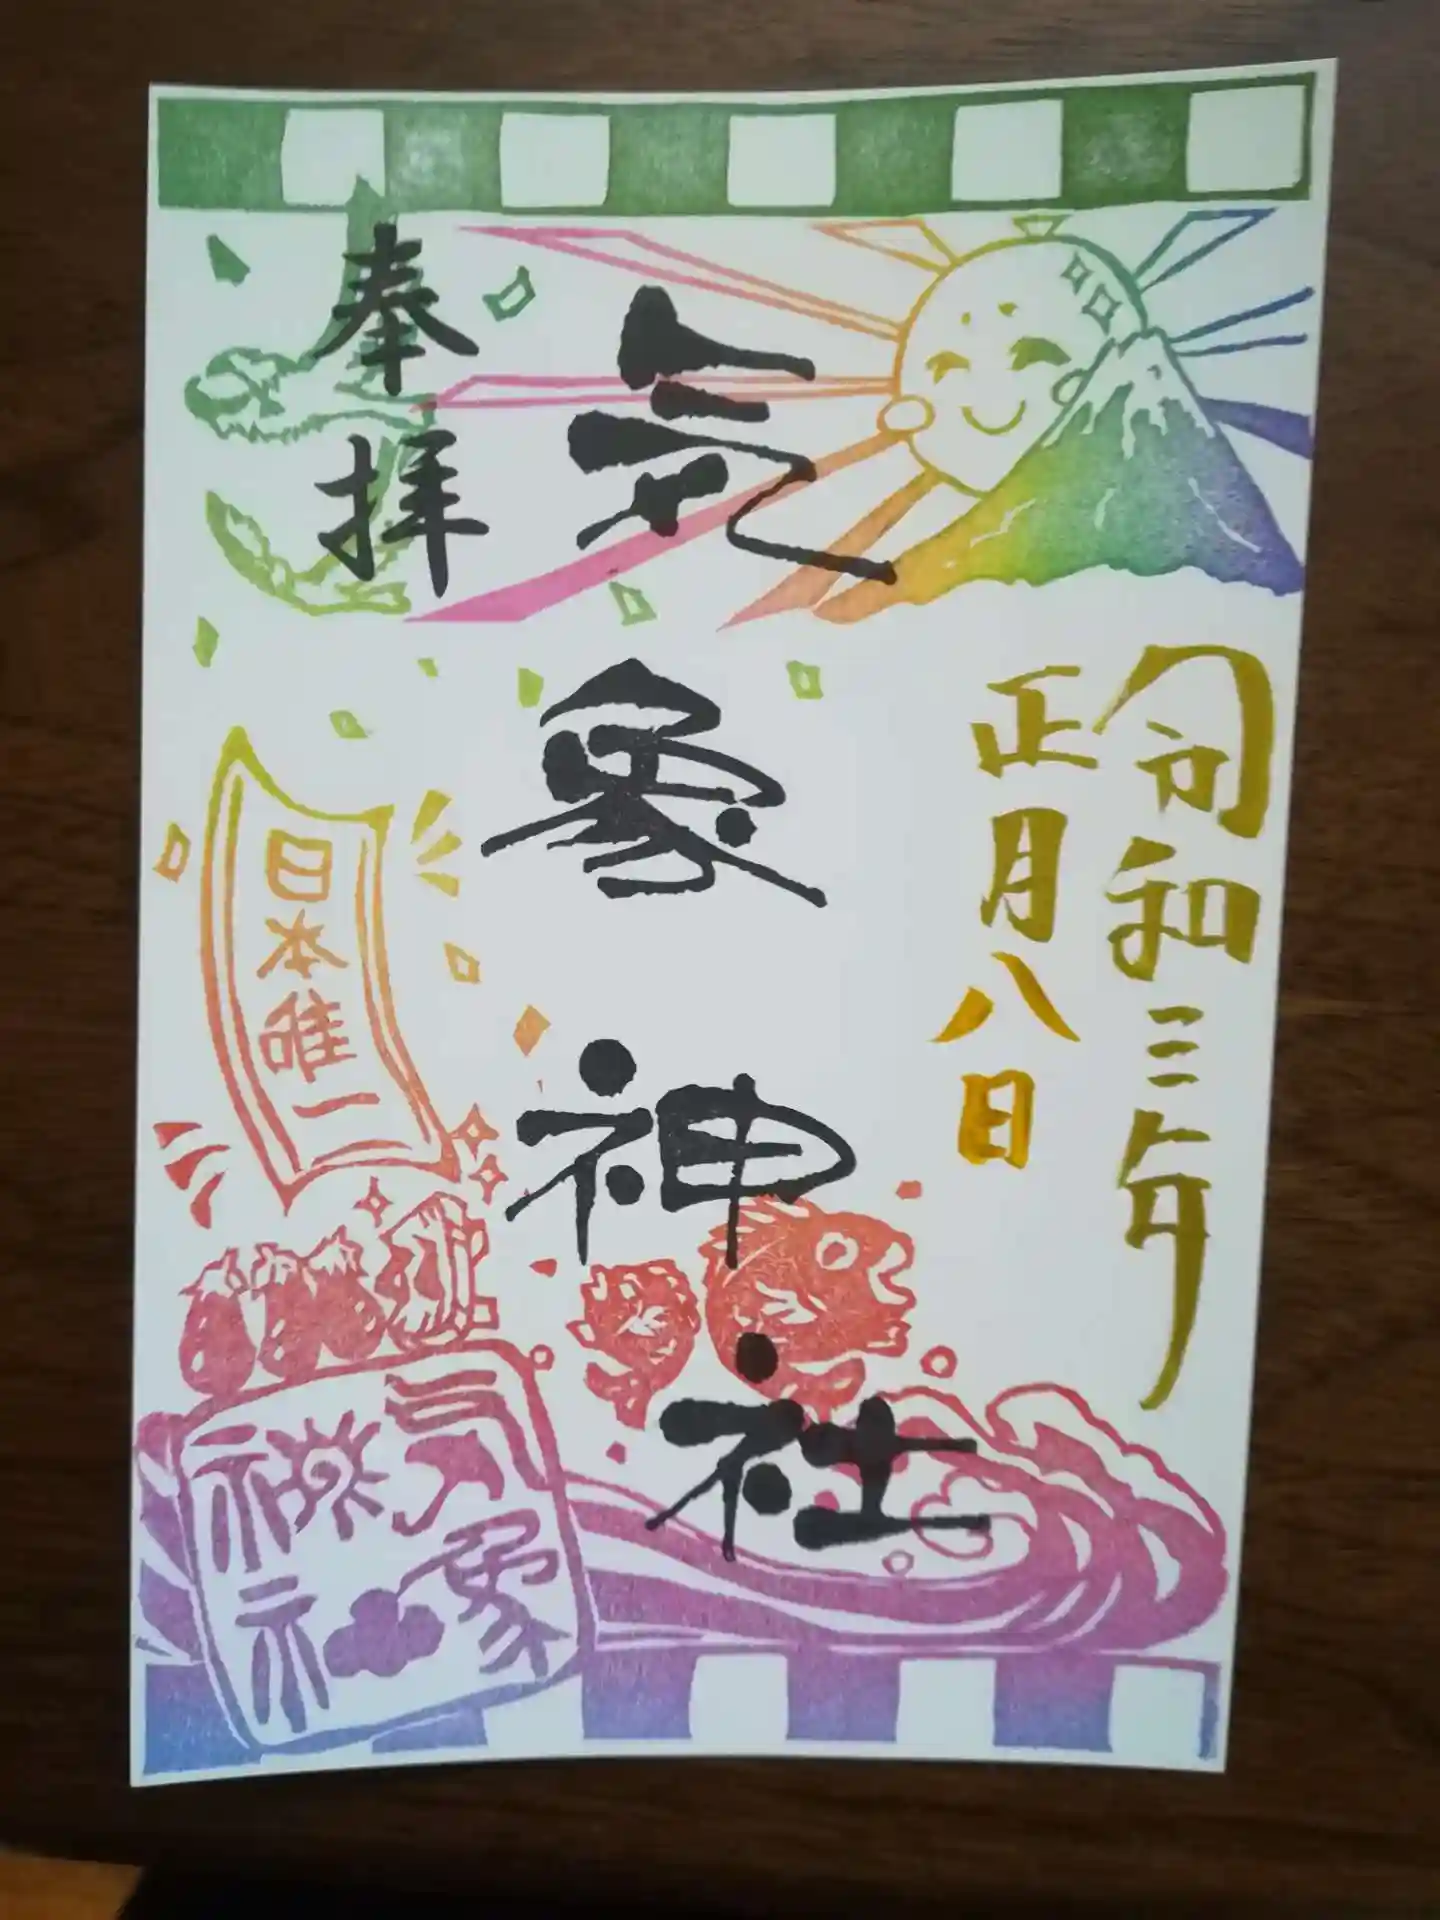 令和三年
正月八日
気象神社
奉拝
日本唯一
気象
神社